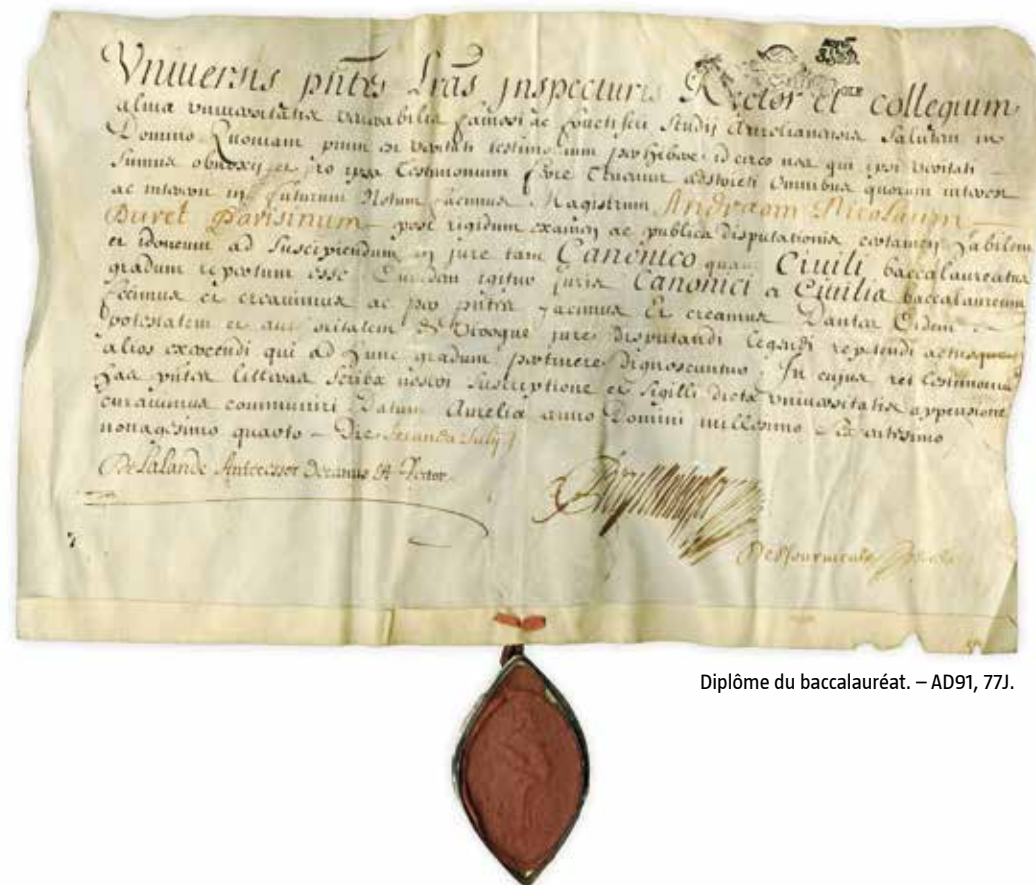 Vniuersis pñtes Lrãs jnspecturis Rector et collegium
almæ vniuersitatis venerabilis famosi ac fructiferi Studij Aurelianensis Salutem in
Domino Quoniam pium est veritati testimonium perhibere id circo nos qui ipsi veritati
Sumus obnoxij et pro ipsa testimonium ferre tenemur adstricti Omnibus quorum interest
ac intererit in futurum Notum facimus Magistrum Andræam Nicolaum
Duret Parisinum post rigidum examen ac publicæ disputationis certamen habilem
et idoneum ad suscipiendum in jure tam Canonico quam Ciuili baccalaureatus
gradum repertum esse Eundem igitur juris Canonici et Ciuilis baccalaureum
fecimus et creauimus ac per pñtes facimus Et creamus Dantes Eidem
potestatem et auctoritatem de vtroque jure disputandi legendi repetendi actusque
alios exercendi qui ad hunc gradum pertinere dignoscuntur. In cujus rei testimonium
has pñtes litteras scribæ nostri suscriptione et sigilli dictæ vniuersitatis appensione
curauimus communiri Datum Aureliæ anno Domini millesimo sexcentesimo
nonagesimo quarto Die secunda Julij
De Lalande Antecessor Decanus et Rector
Diplôme du baccalauréat. – AD91, 77J.